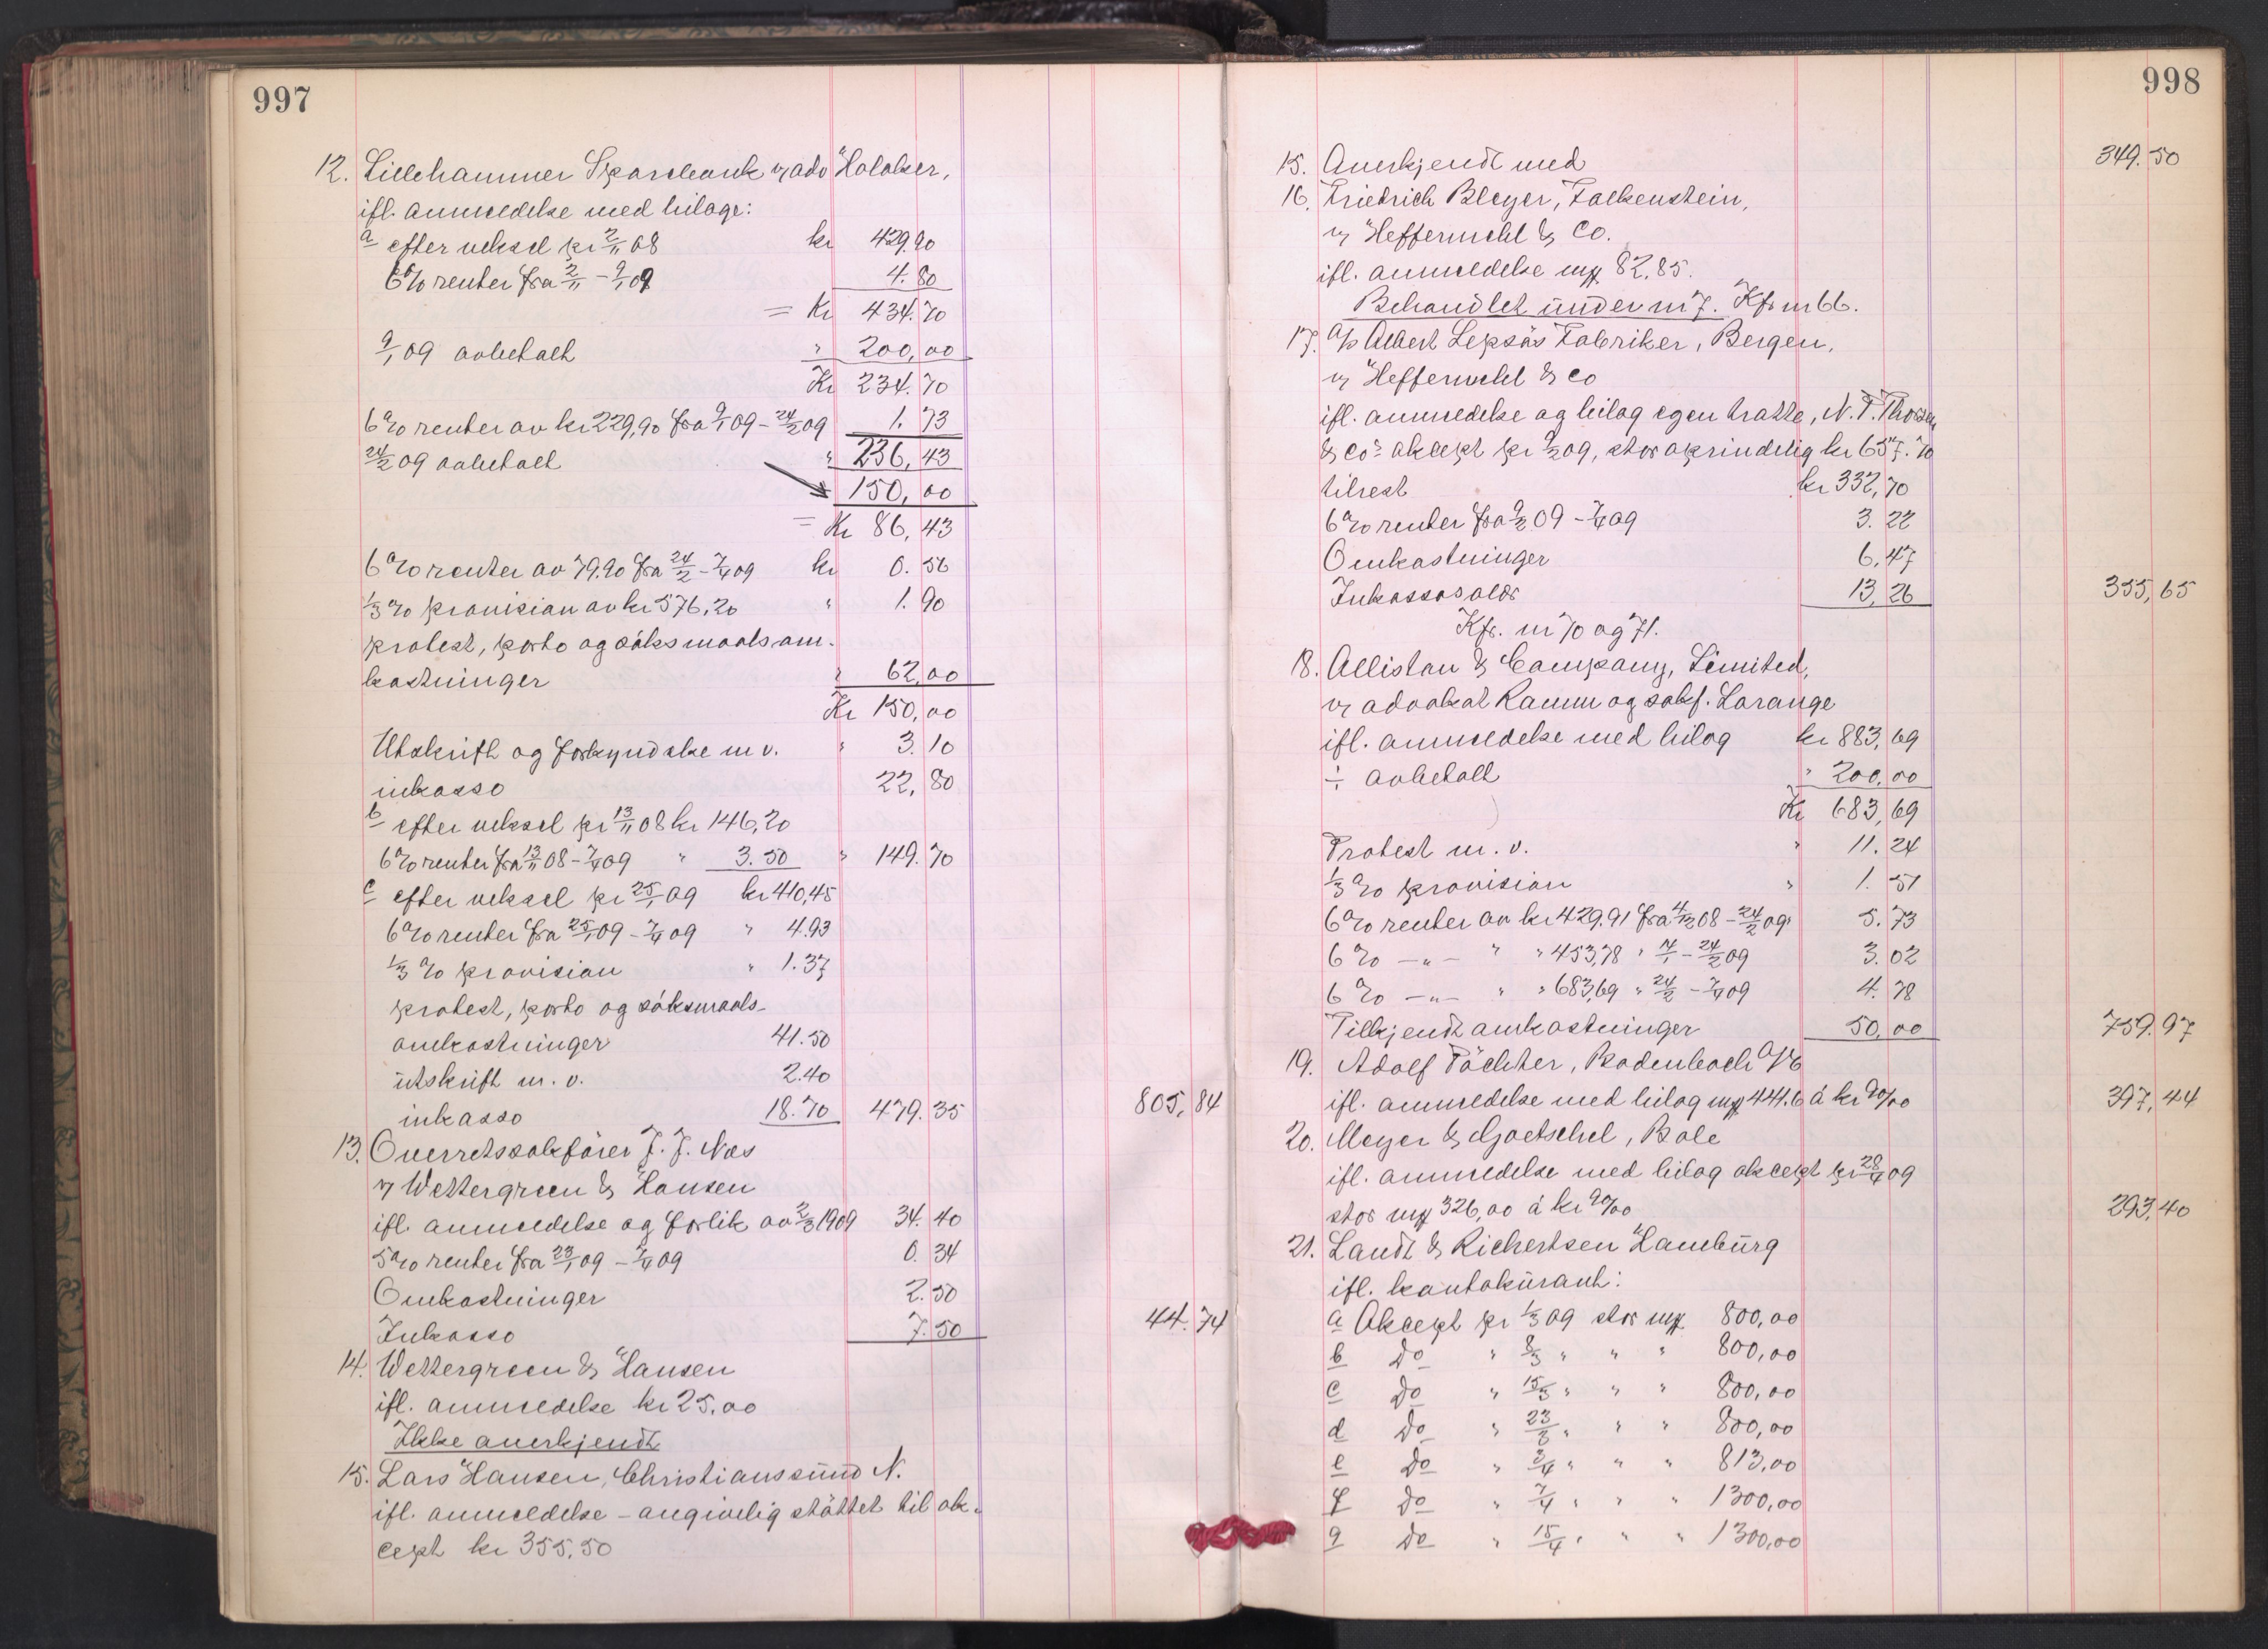 997
12. Lillehammer Sparebank v/ adv Holaker,
ifl. anmeldelse med bilage:
a efter veksel pr 2/11 08 kr 429.90
6% renter fra 2/11 - 9/1 09 4.80
= Kr 434.70
9/1 09 avbetalt " 200,00
Kr 234.70
6% renter av kr 229,90 fra 9/1 09 - 24/2 09 1.73
236,43
24/2 09 avbetalt " 150,00
= Kr 86,43
6% renter av 79.90 fra 24/2 - 7/4 09 kr 0.56
1/3% provision av kr 576,20 " 1.90
protest, porto og søksmaalsom-
kostninger " 62,00
Kr 150,00
Utskrift og forkyndelse m v. " 3.10
inkasso 22,80
b efter veksel pr 13/11 08 kr 146,20
6% renter fra 13/11 08 - 7/4 09 " 3.50 " 149.70
c efter veksel pr 25/1 09 kr 410,45
6% renter fra 25/1 09 - 7/4 09 " 4.93
1/3% provision " 1.37
protest, porto og søksmaals-
omkostninger 41.50
utskrift m. v. 2.40
inkasso 18.70 479.35 805,84
13. Overretssakfører J. J. Næs
v/ Wettergreen & Hansen
ifl. anmeldelse og forlik av 2/3 1909 34.40
5% renter fra 23/1 09 - 7/4 09 0.34
Omkostninger 2.50
Inkasso 7.50 44.74
14. Wettergreen & Hansen
ifl. anmeldelse kr 25,00
Ikke anerkjendt
15. Lars Hansen, Christianssund N.
ifl. anmeldelse – angivelig støttet til ak-
cept kr 355,50
998
15. Anerkjendt med 349.50
16. Friedrich Bleyer, Falkenstein,
v/ Heffermehl & Co.
ifl. anmeldelse mk 82,85.
Behandlet under nr 7. Kfr nr 66.
17. a/s Albert Lepsøs Fabriker, Bergen,
v/ Heffermehl & Co
ifl. anmeldelse og bilag egen tratte, N. T. Thorsen
& Co's aksept pr 9/2 09, stor oprindelig kr 657.70
tilrest kr 332,70
6% renter fra 9/2 09 - 7/4 09 3.22
Omkostninger 6,47
Inkassosalær 13,26 355,65
Kfr. nr 70 og 71.
18. Alliston & Company, Limited,
v/ advokat Ramm og sakf. Lorange
ifl. anmeldelse med bilag kr 883,69
÷ avbetalt " 200,00
Kr 683,69
Protest m. v. " 11.24
1/3% provision " 1.51
6% renter av kr 429.91 fra 4/12 08 - 24/2 09 5.73
6% -"- " " 453,78 " 14/1 - 24/2 09 3.02
6% -"- " " 683,69 " 24/2 - 7/4 09 4.78
Tilkjendt omkostninger 50,00 759.97
19. Adolf Pächter, Bodenbach a/E
ifl. anmeldelse med bilag mk 441.6 á kr 90/00 397,44
20. Meyer & Goetschel, Bale
ifl. anmeldelse med bilag aksept pr 28/4 09
stor mk 326,00 á kr 90/00 293,40
21. Landt & Richertsen Hamburg
ifl. kontokurant:
a Aksept pr 1/3 09 stor mk. 800,00
b do " 8/3 " " " 800,00
c do " 15/3 " " " 800,00
d do " 23/3 " " " 800,00
e do " 2/4 " " " 813,00
f do " 7/4 " " " 1300,00
g do " 15/4 " " " 1300,00